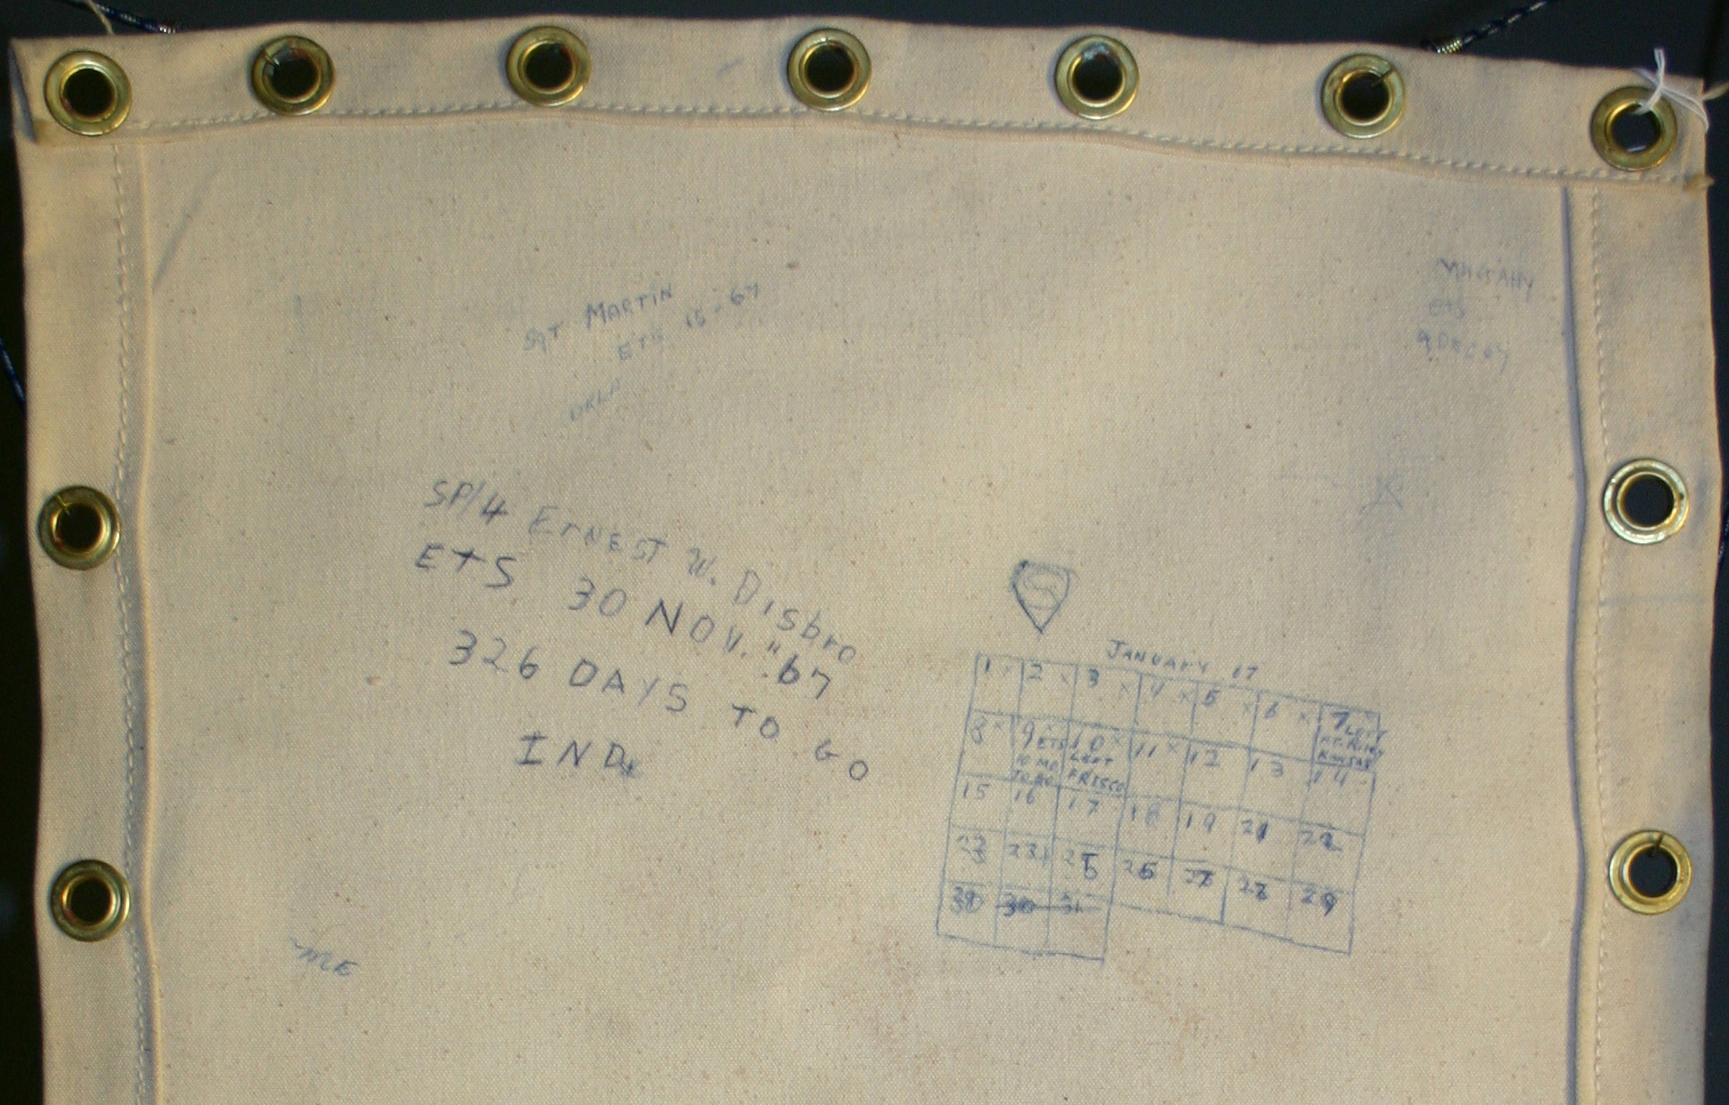 Sgt MARTIN
ETS 15-67
OKLA
ETS
9 DEC 67
SP/4 ERNEST W. Disbro
ETS 30 NOV. "67
326 DAYS TO GO
IND.
S
JANUARY 67
1 x 2 x 3 x 4 x 5 x 6 x 7 LEFT FT. Riley KANSAS
8 x 9 x ETS 10 MO TO GO 10 x LEFT FRISCO 11 x 12 13 14
15 16 17 18 19 21 22
23 26 27 28 29
30 30 31
ME